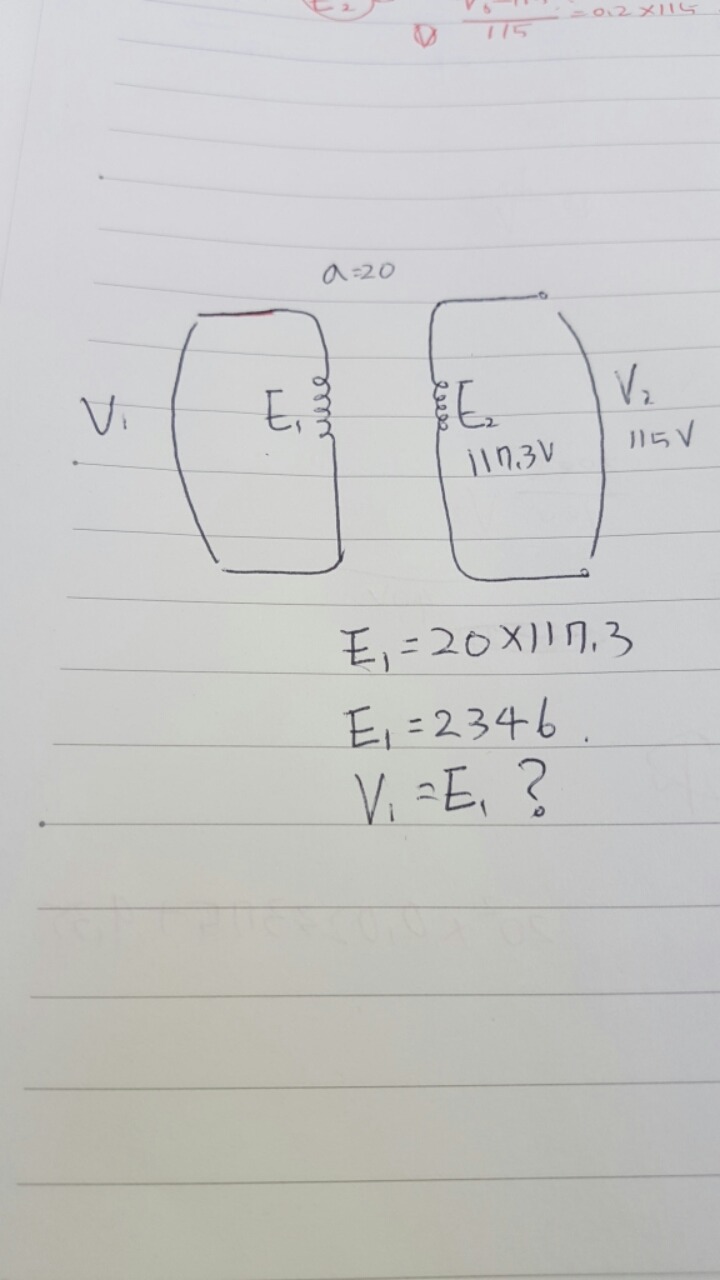 E₂
= 0.2 × 115
115
a=20
V₁
E₁
E₂
117.3V
V₂
115V
E₁ = 20 × 117.3
E₁ = 2346.
V₁ = E₁ ?